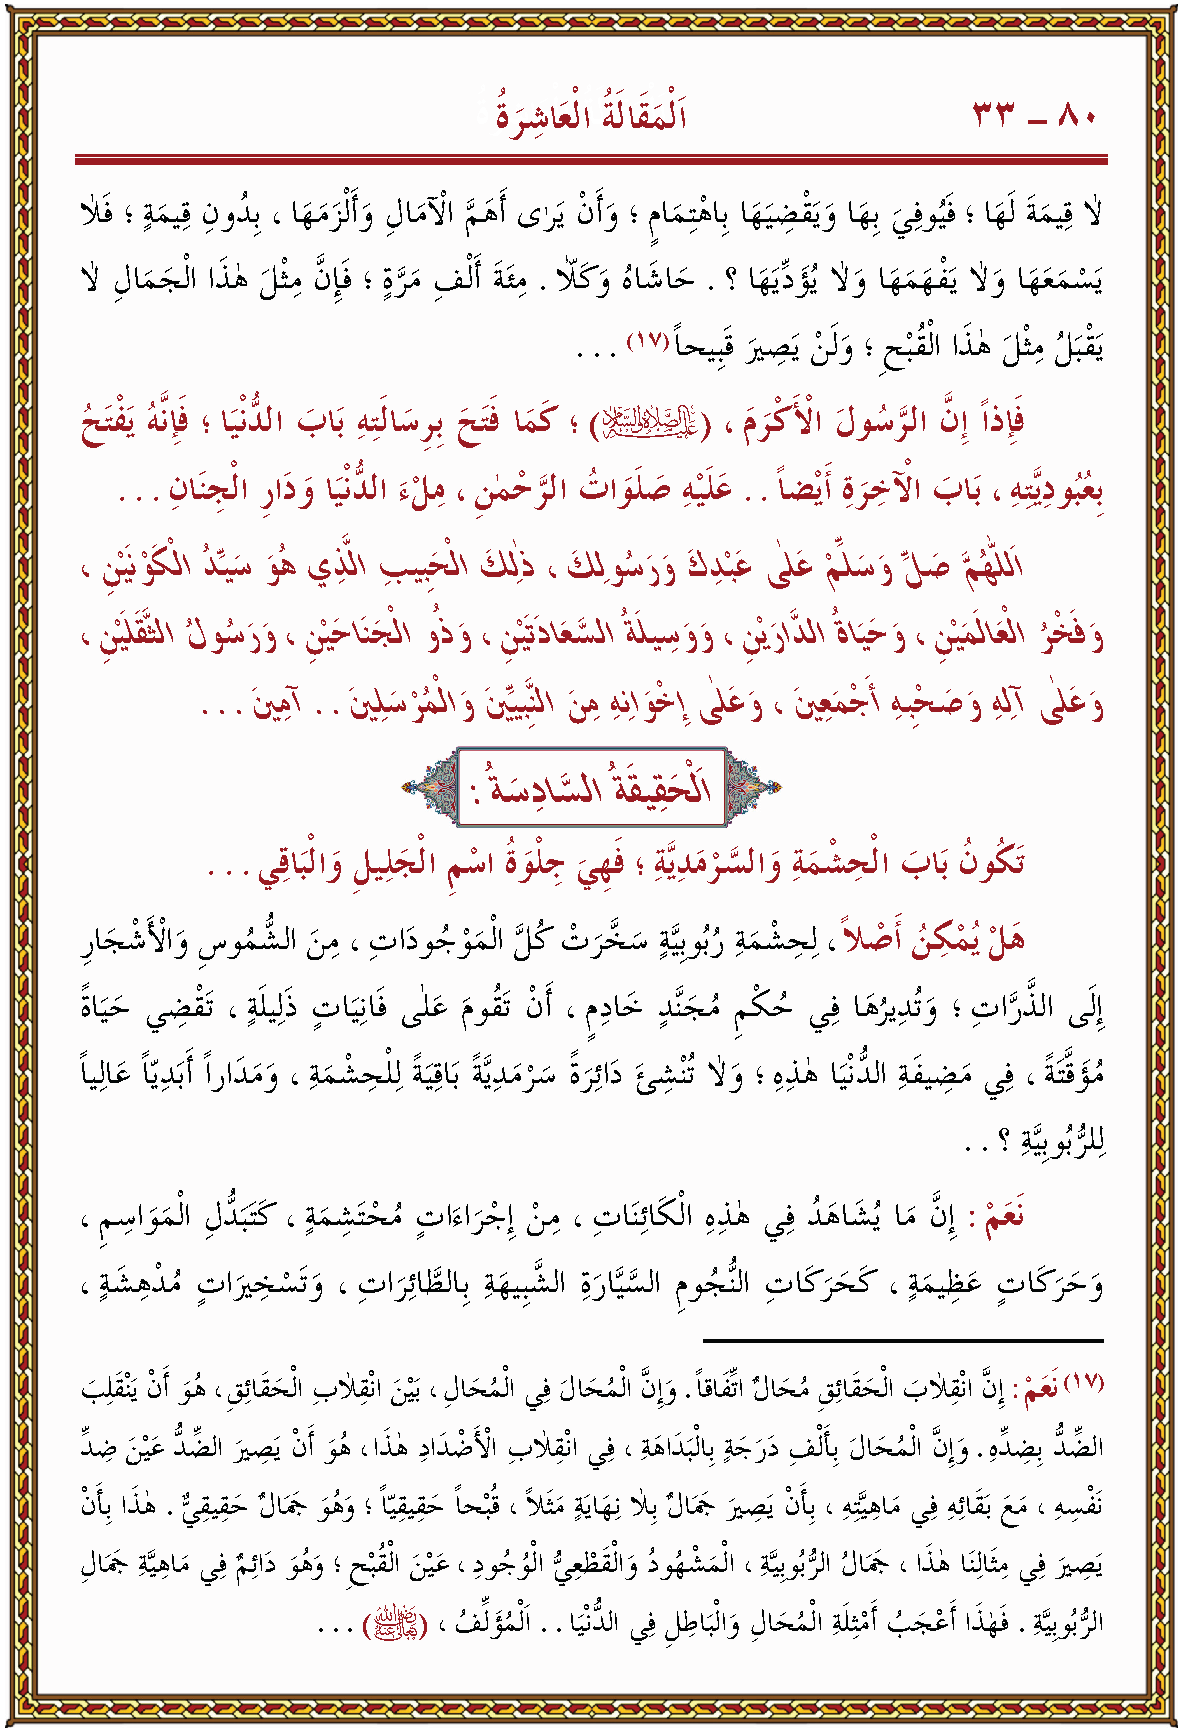 ٨٠ – ٣٣ اَلْمَقَالَةُ الْعَاشِرَةُ
لاٰ قِيمَةَ لَهَا ؛ فَيُوفِيَ بِهَا وَيَقْضِيَهَا بِاهْتِمَامٍ ؛ وَأَنْ يَرٰى أَهَمَّ الْآمَالِ وَأَلْزَمَهَا ، بِدُونِ قِيمَةٍ ؛ فَلاٰ
يَسْمَعَهَا وَلاٰ يَفْهَمَهَا وَلاٰ يُؤَدِّيَهَا ؟ . حَاشَاهُ وَكَلاّٰ . مِئَةَ أَلْفِ مَرَّةٍ ؛ فَإِنَّ مِثْلَ هٰذَا الْجَمَالِ لاٰ
يَقْبَلُ مِثْلَ هٰذَا الْقُبْحِ ؛ وَلَنْ يَصِيَر قَبِيحاً (١٧) . . .
فَإِذاً إِنَّ الرَّسُولَ الْأَكْرَمَ ، (عَلَيْهِ الصَّلَاةُ وَالسَّلَامُ) ؛ كَمَا فَتَحَ بِرِسَالَتِهِ بَابَ الدُّنْيَا ؛ فَإِنَّهُ يَفْتَحُ
بِعُبُودِيَّتِهِ ، بَابَ الْآخِرَةِ أَيْضاً . . عَلَيْهِ صَلَوَاتُ الرَّحْمٰنِ ، مِلْءَ الدُّنْيَا وَدَارِ الْجِنَانِ . . .
اَللّٰهُمَّ صَلِّ وَسَلِّمْ عَلٰى عَبْدِكَ وَرَسُولِكَ ، ذٰلِكَ الْحَبِيبِ الَّذِي هُوَ سَيِّدُ الْكَوْنَيْنِ ،
وَفَخْرُ الْعَالَمَيْنِ ، وَحَيَاةُ الدَّارَيْنِ ، وَوَسِيلَةُ السَّعَادَتَيْنِ ، وَذُو الْجَنَاحَيْنِ ، وَرَسُولُ الثَّقَلَيْنِ ،
وَعَلٰى آلِهِ وَصَحْبِهِ أَجْمَعِينَ ، وَعَلٰى إِخْوَانِهِ مِنَ النَّبِيِّينَ وَالْمُرْسَلِينَ . . آمِينَ . . .
اَلْحَقِيقَةُ السَّادِسَةُ :
تَكُونُ بَابَ الْحِشْمَةِ وَالسَّرْمَدِيَّةِ ؛ فَهِيَ جِلْوَةُ اسْمِ الْجَلِيلِ وَالْبَاقِي . . .
هَلْ يُمْكِنُ أَصْلاً ، لِحِشْمَةِ رُبُوبِيَّةٍ سَخَّرَتْ كُلَّ الْمَوْجُودَاتِ ، مِنَ الشُّمُوسِ وَالْأَشْجَارِ
إِلَى الذَّرَّاتِ ؛ وَتُدِيرُهَا فِي حُكْمِ مُجَنَّدٍ خَادِمٍ ، أَنْ تَقُومَ عَلٰى فَانِيَاتٍ ذَلِيلَةٍ ، تَقْضِي حَيَاةً
مُؤَقَّتَةً ، فِي مَضِيفَةِ الدُّنْيَا هٰذِهِ ؛ وَلاٰ تُنْشِئَ دَائِرَةً سَرْمَدِيَّةً بَاقِيَةً لِلْحِشْمَةِ ، وَمَدَاراً أَبَدِيّاً عَالِياً
لِلرُّبُوبِيَّةِ ؟ . .
نَعَمْ : إِنَّ مَا يُشَاهَدُ فِي هٰذِهِ الْكَائِنَاتِ ، مِنْ إِجْرَاءَاتٍ مُحْتَشِمَةٍ ، كَتَبَدُّلِ الْمَوَاسِمِ ،
وَحَرَكَاتٍ عَظِيمَةٍ ، كَحَرَكَاتِ النُّجُومِ السَّيَّارَةِ الشَّبِيهَةِ بِالطَّائِرَاتِ ، وَتَسْخِيَراتٍ مُدْهِشَةٍ ،
(١٧) نَعَمْ : إِنَّ انْقِلاٰبَ الْحَقَائِقِ مُحَالٌ اتِّفَاقاً . وَإِنَّ الْمُحَالَ فِي الْمُحَالِ ، بَيْنَ انْقِلاٰبِ الْحَقَائِقِ ، هُوَ أَنْ يَنْقَلِبَ
الضِّدُّ بِضِدِّهِ . وَإِنَّ الْمُحَالَ بِأَلْفِ دَرَجَةٍ بِالْبَدَاهَةِ ، فِي انْقِلاٰبِ الْأَضْدَادِ هٰذَا ، هُوَ أَنْ يَصِيَر الضِّدُّ عَيْنَ ضِدِّ
نَفْسِهِ ، مَعَ بَقَائِهِ فِي مَاهِيَّتِهِ ، بِأَنْ يَصِيَر جَمَالٌ بِلاٰ نِهَايَةٍ مَثَلاً ، قُبْحاً حَقِيقِيّاً ؛ وَهُوَ جَمَالٌ حَقِيقِيٌّ . هٰذَا بِأَنْ
يَصِيَر فِي مِثَالِنَا هٰذَا ، جَمَالُ الرُّبُوبِيَّةِ ، الْمَشْهُودُ وَالْقَطْعِيُّ الْوُجُودِ ، عَيْنَ الْقُبْحِ ؛ وَهُوَ دَائِمٌ فِي مَاهِيَّةِ جَمَالِ
الرُّبُوبِيَّةِ . فَهٰذَا أَعْجَبُ أَمْثِلَةِ الْمُحَالِ وَالْبَاطِلِ فِي الدُّنْيَا . . اَلْمُؤَلِّفُ ، (رَضِيَ اللهُ تَعَالَى عَنْهُ) . . .